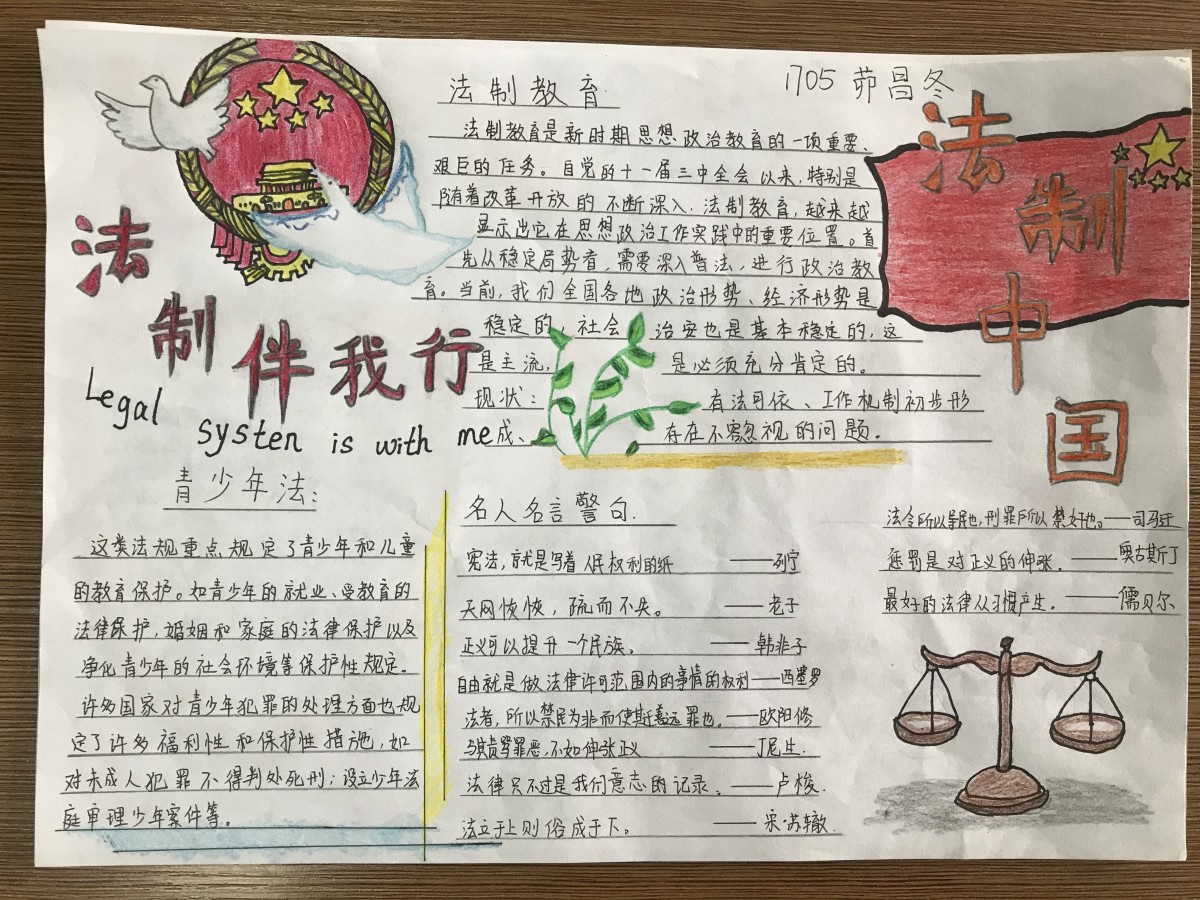 法制教育
1705 茆昌冬
法制教育是新时期思想政治教育的一项重要、
艰巨的任务。自党的十一届三中全会以来,特别是
随着改革开放的不断深入,法制教育,越来越
显示出它在思想政治工作实践中的重要位置。首
先从稳定局势看,需要深入普法,进行政治教
育。当前,我们全国各地政治形势、经济形势是
稳定的,社会治安也是基本稳定的,这
是主流,是必须充分肯定的。
现状:有法可依、工作机制初步形
成、存在不容忽视的问题。
法制伴我行
Legal systen is with me
法制中国
青少年法:
这类法规重点规定了青少年和儿童
的教育保护。如青少年的就业、受教育的
法律保护,婚姻和家庭的法律保护以及
净化青少年的社会环境等保护性规定。
许多国家对青少年犯罪的处理方面也规
定了许多福利性和保护性措施,如
对未成人犯罪不得判处死刑;设立少年法
庭审理少年案件等。
名人名言警句.
宪法,就是写着人民权利的纸 ——列宁
天网恢恢,疏而不失。 ——老子
正义可以提升一个民族。 ——韩非子
自由就是做法律许可范围内的事情的权利——西塞罗
法者,所以禁民为非而使其迁善远罪也。——欧阳修
与其责骂罪恶,不如伸张正义 ——丁尼生.
法律只不过是我们意志的记录。——卢梭.
法立于上则俗成于下。 ——宋·苏辙.
法令所以导民也,刑罪所以禁奸也。——司马迁
惩罚是对正义的伸张。——奥古斯丁
最好的法律从习惯产生。——儒贝尔